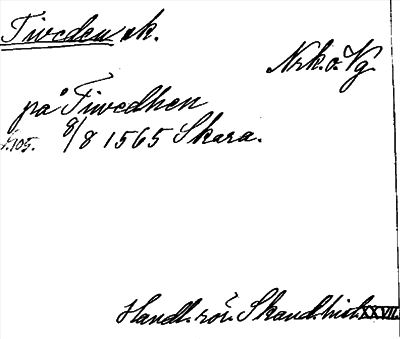 Tiveden sk.
Nrk. o. Vg.
på Tiwedhen
s. 105. 8/8 1565 Skara.
Handl. rör. Skand. hist. XXVII.